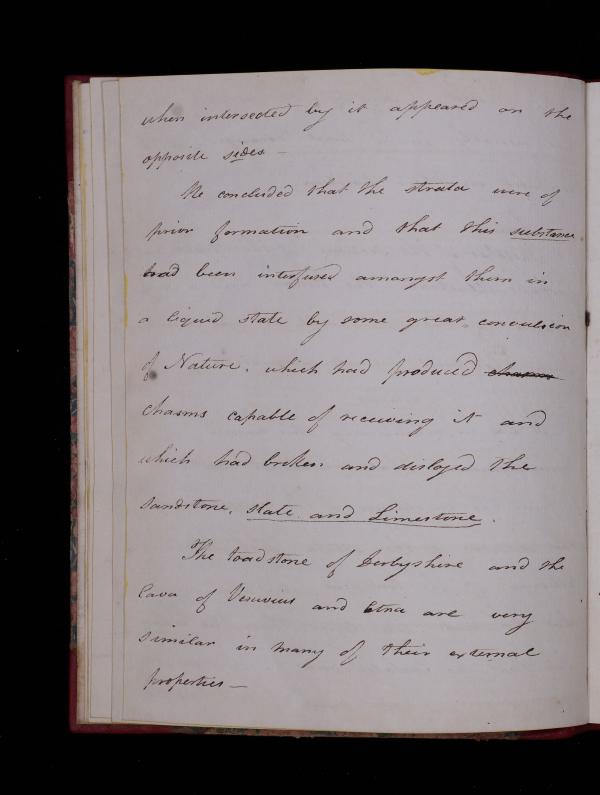 when intersected by it appeared on the
opposite sides –
He concluded that the strata were of
prior formation and that this substance
had been interfused amongst them in
a liquid state by some great convulsion
of Nature. which had produced chasms
chasms capable of receiving it and
which had broken and disloged the
sandstone, slate and Limestone.
The toadstone of Derbyshire and the
lava of Vesuvius and Etna are very
similar in many of their external
properties –